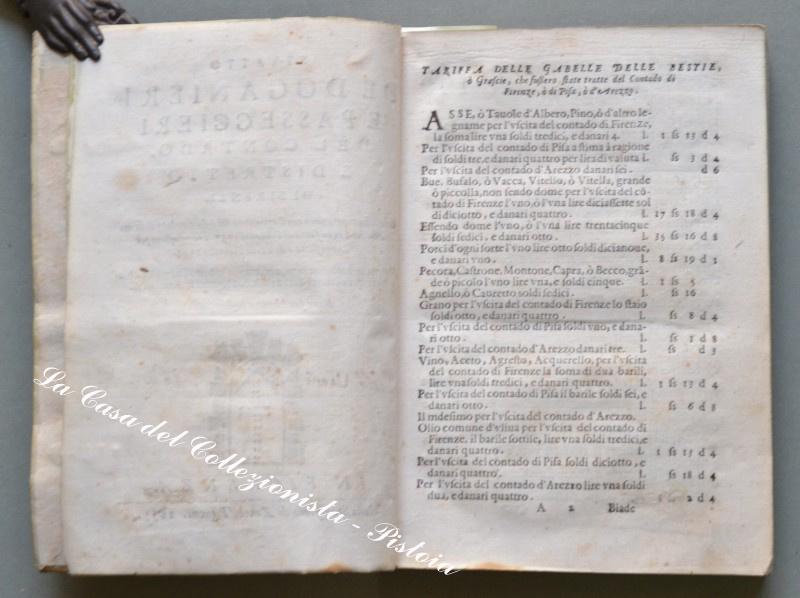 TARIFFA DELLE GABELLE DELLE BESTIE,
ò Grascie, che fussero state tratte del Contado di
Firenze, ò di Pisa, ò d'Arezzo.
ASSE, ò Tauole d'Albero, Pino, ò d'altro le-
gname per l'vscita del contado di Firenze,
la soma lire vna soldi tredici, e danari 4. l. 1 ss 13 d 4
Per l'vscita del contado di Pisa a stima à ragione
di soldi tre, e danari quattro per lira di valuta l. ss 3 d 4
Per l'vscita del contado d'Arezzo danari sei. d 6
Bue, Bufalo, ò Vacca, Vitello, ò Vitella, grande
ò piccolla, non sendo dome per l'vscita del cō-
tado di Firenze l'vno, ò l'vna lire diciassette sol
di diciotto, e danari quattro. l. 17 ss 18 d 4
Essendo dome l'vno, ò l'vna lire trentacinque
soldi sedici, e danari otto. l. 35 ss 16 d 8
Porci d'ogni sorte l'vno lire otto soldi dicianoue,
e danari vno. l. 8 ss 19 d 1
Pecora, Castrone, Montone, Capra, ò Becco, grā-
de ò picolo l'vno lire vna, e soldi cinque. l. 1 ss 5
Agnello, ò Cauretto soldi sedici. ss 16
Grano per l'vscita del contado di Firenze lo staio
soldi otto, e danari quattro. l. ss 8 d 4
Per l'vscita del contado di Pisa soldi vno, e dana-
ri otto. l. ss 1 d 8
Per l'vscita del contado d'Arezzo danari tre. l. ss d 3
Vino, Aceto, Agresto, Acquerello, per l'vscita
del contado di Firenze la soma di dua barili,
lire vna soldi tredici, e danari quattro. l. 1 ss 13 d 4
Per l'vscita del contado di Pisa il barile soldi sei, e
danari otto. l. ss 6 d 8
Il mdesimo per l'vscita del contado d'Arezzo.
Olio comune d'vliua per l'vscita del contado di
Firenze. il barile sottile, lire vna soldi tredici, e
danari quattro l. 1 ss 13 d 4
Per l'vscita del contado di Pisa soldi diciotto, e
danari quattro. l. ss 18 d 4
Per l'vscita del contado d'Arezzo lire vna soldi
dua, e danari quattro. 2 d 4
A 2 Biade
La Casa del Collezionista - Pistoia